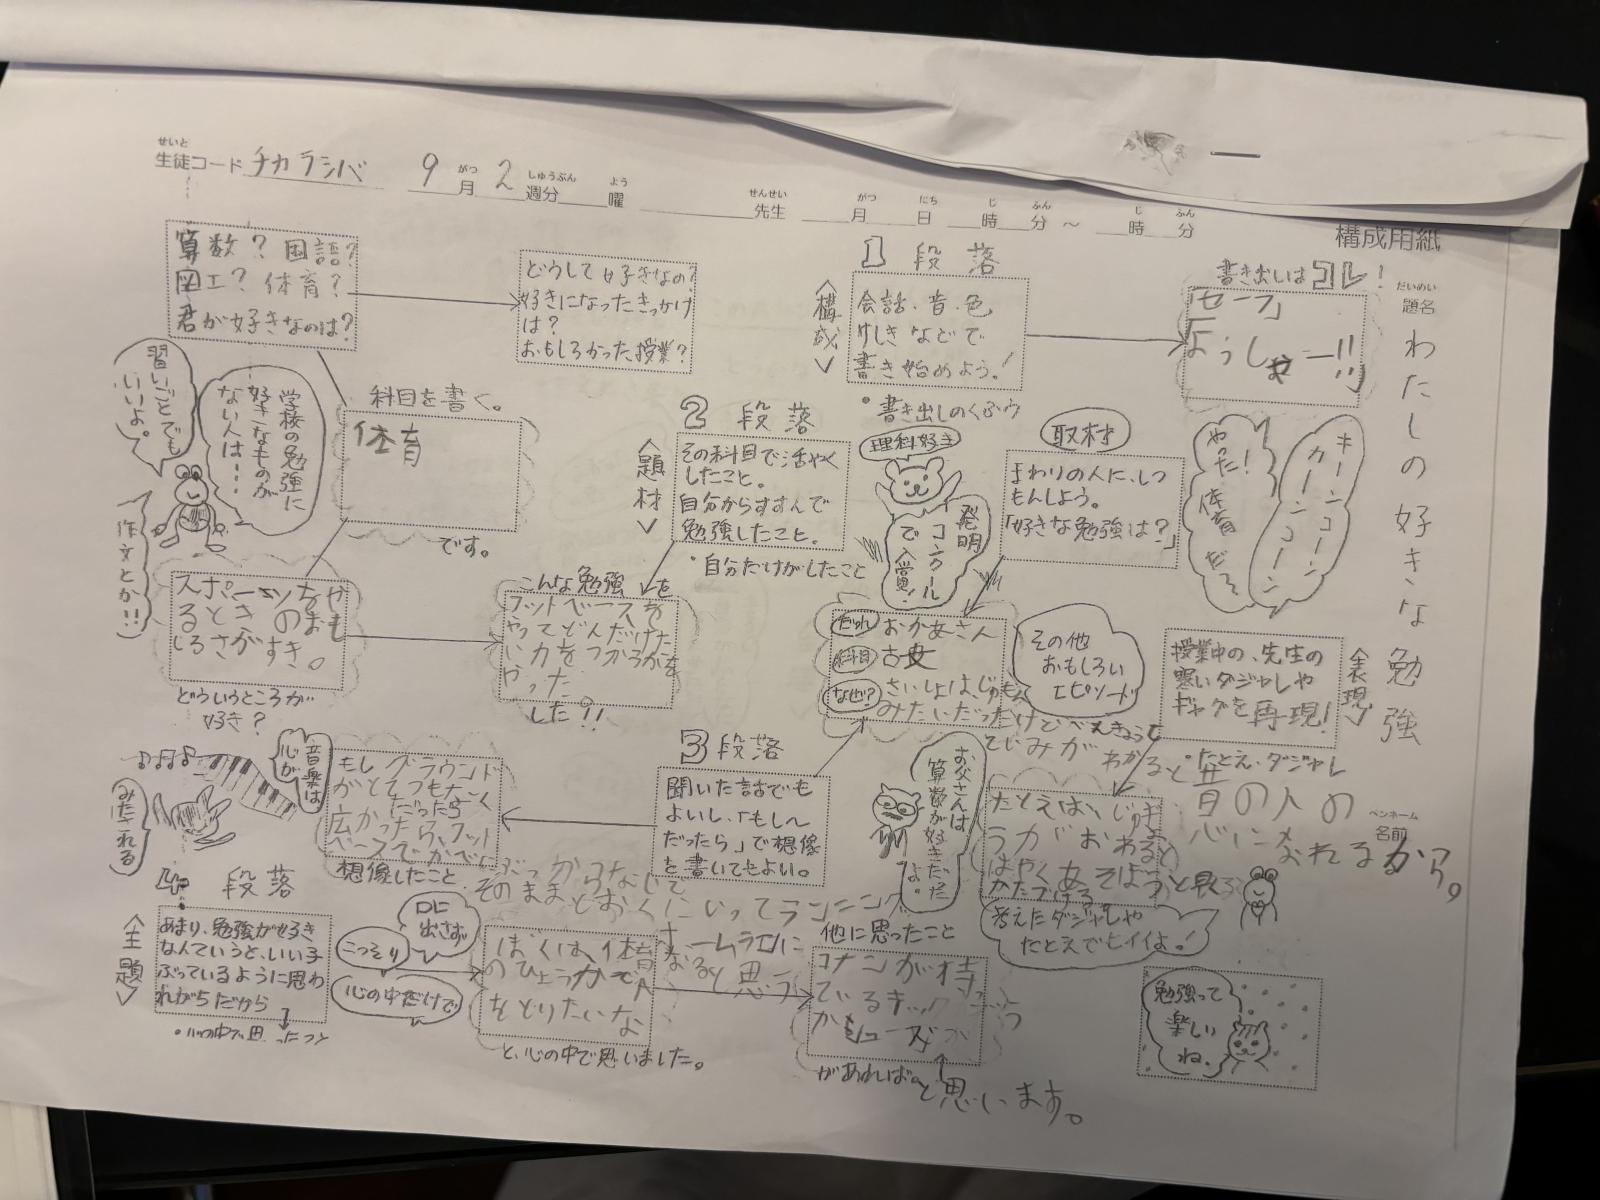 生徒コード チカラシバ 9月 2週分 曜 先生 月 日 時 分 ～ 時 分
せいと がつ しゅうぶん よう せんせい がつ にち じ ふん じ ふん
構成用紙
だいめい
題名 わたしの好きな勉強
ペンネーム
名前
算数？国語？
図工？体育？
君が好きなのは？
どうして好きなの？
好きになったきっかけ
は？
おもしろかった授業？
習いごとでも
いいよ。
学校の勉強に
好きなものが
ない人は…
作文とか!!
科目を書く。
体育
です。
スポーツをや
るときのおも
しろさがすき。
どういうところが
好き？
こんな勉強を
フットベースを
やってどんだけた
い力をつかうかを
やった
した!!
1段落
〈構成〉
会話・音・色
けしきなどで
書き始めよう！
・書き出しのくふう
書き出しはコレ！
「セーフ」
「よっしゃー!!」
キーンコーン
カーンコーン
やった！
体育だ～
2段落
〈題材〉
その科目で活やく
したこと。
自分からすすんで
勉強したこと。
・自分だけがしたこと
理科好き
発明
コンクール
で入賞！
取材
まわりの人に、しつ
もんしよう。
「好きな勉強は？」
だれ おかあさん
科目 古文
なぜ？ さいしょは、じゅもん
みたいだったけどべんきょうし
ていみがわかると
昔の人の
心になれるから。
その他
おもしろい
エピソード
〈表現〉
授業中の、先生の
寒いダジャレや
ギャグを再現！
・たとえ・ダジャレ
たとえば、じゅぎょ
うがおわると
はやくあそぼうと早く
かたづける
考えたダジャレや
たとえでヒイイよ！
3段落
聞いた話でも
よいし、「もし～
だったら」で想像
を書いてもよい。
お父さんは
算数が好きだった
よ。
もしグラウンド
がとてつもなく
広かったら、フット
ベースでかべに
ぶつからないで
そのままとおくにいってランニング
ホームランに
なると思う
想像したこと
音楽は
心が
みたされる
4段落
〈主題〉
あまり、勉強が好き
なんていうと、いい子
ぶっているように思わ
れがちだから
・心の中で思ったこと
口に
出さず
こっそり
心の中だけで
ぼくは、体育
のひょうかでA
をとりたいな
と、心の中で思いました。
他に思ったこと
コナンが持っ
ているキック
シューズが
があれば。と思います。
勉強って
楽しい
ね。